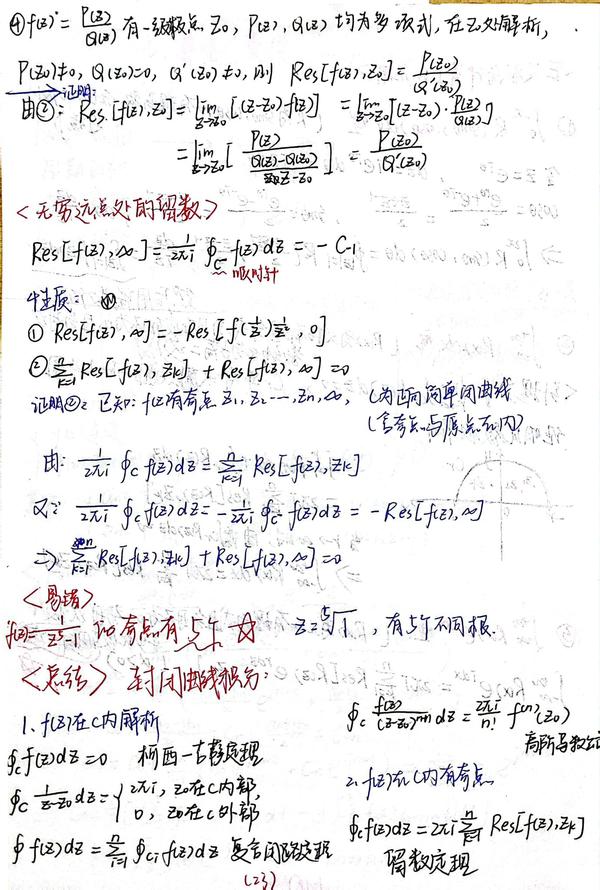 ④ f(z) = P(z)/Q(z) 有一级极点 z₀, P(z), Q(z) 均为多项式, 在z₀处解析,
P(z₀)≠0, Q(z₀)=0, Q'(z₀)≠0, 则 Res[f(z), z₀] = P(z₀)/Q'(z₀)
证明:
由②: Res[f(z), z₀] = lim_{z→z₀} [(z-z₀)·f(z)] = lim_{z→z₀} [(z-z₀)·P(z)/Q(z)]
= lim_{z→z₀} [P(z)/((Q(z)-Q(z₀))/(z-z₀))] = P(z₀)/Q'(z₀)
<无穷远点处的留数>
Res[f(z), ∞] = 1/(2πi) ∮_{C⁻} f(z)dz = -C₋₁
顺时针
性质:
① Res[f(z), ∞] = -Res[f(1/z)·1/z², 0]
② Σ_{k=1}^{n} Res[f(z), z_k] + Res[f(z), ∞] = 0
证明②: 已知: f(z)有奇点 z₁, z₂ ⋯, z_n, ∞, C为正向简单闭曲线
(含奇点与原点在内)
由: 1/(2πi) ∮_C f(z)dz = Σ_{k=1}^{n} Res[f(z), z_k]
又∵ 1/(2πi) ∮_C f(z)dz = -1/(2πi) ∮_{C⁻} f(z)dz = -Res[f(z), ∞]
⇒ Σ_{k=1}^{n} Res[f(z), z_k] + Res[f(z), ∞] = 0
<易错>
f(z) = 1/(z⁵-1) 的奇点有5个 ☆ z = ⁵√1, 有5个不同根.
<总结> 封闭曲线积分:
1. f(z)在C内解析
∮_C f(z)dz = 0 柯西-古萨定理
∮_C 1/(z-z₀) dz = { 2πi, z₀在C内部,
0, z₀在C外部
∮ f(z)dz = Σ_{i=1}^{n} ∮_{Ci} f(z)dz 复合闭路定理
∮_C f(z)/(z-z₀)ⁿ⁺¹ dz = 2πi/n! f⁽ⁿ⁾(z₀)
高阶导数公式
2. f(z)在C内有奇点
∮_C f(z)dz = 2πi Σ_{k=1}^{n} Res[f(z), z_k]
留数定理
(23)